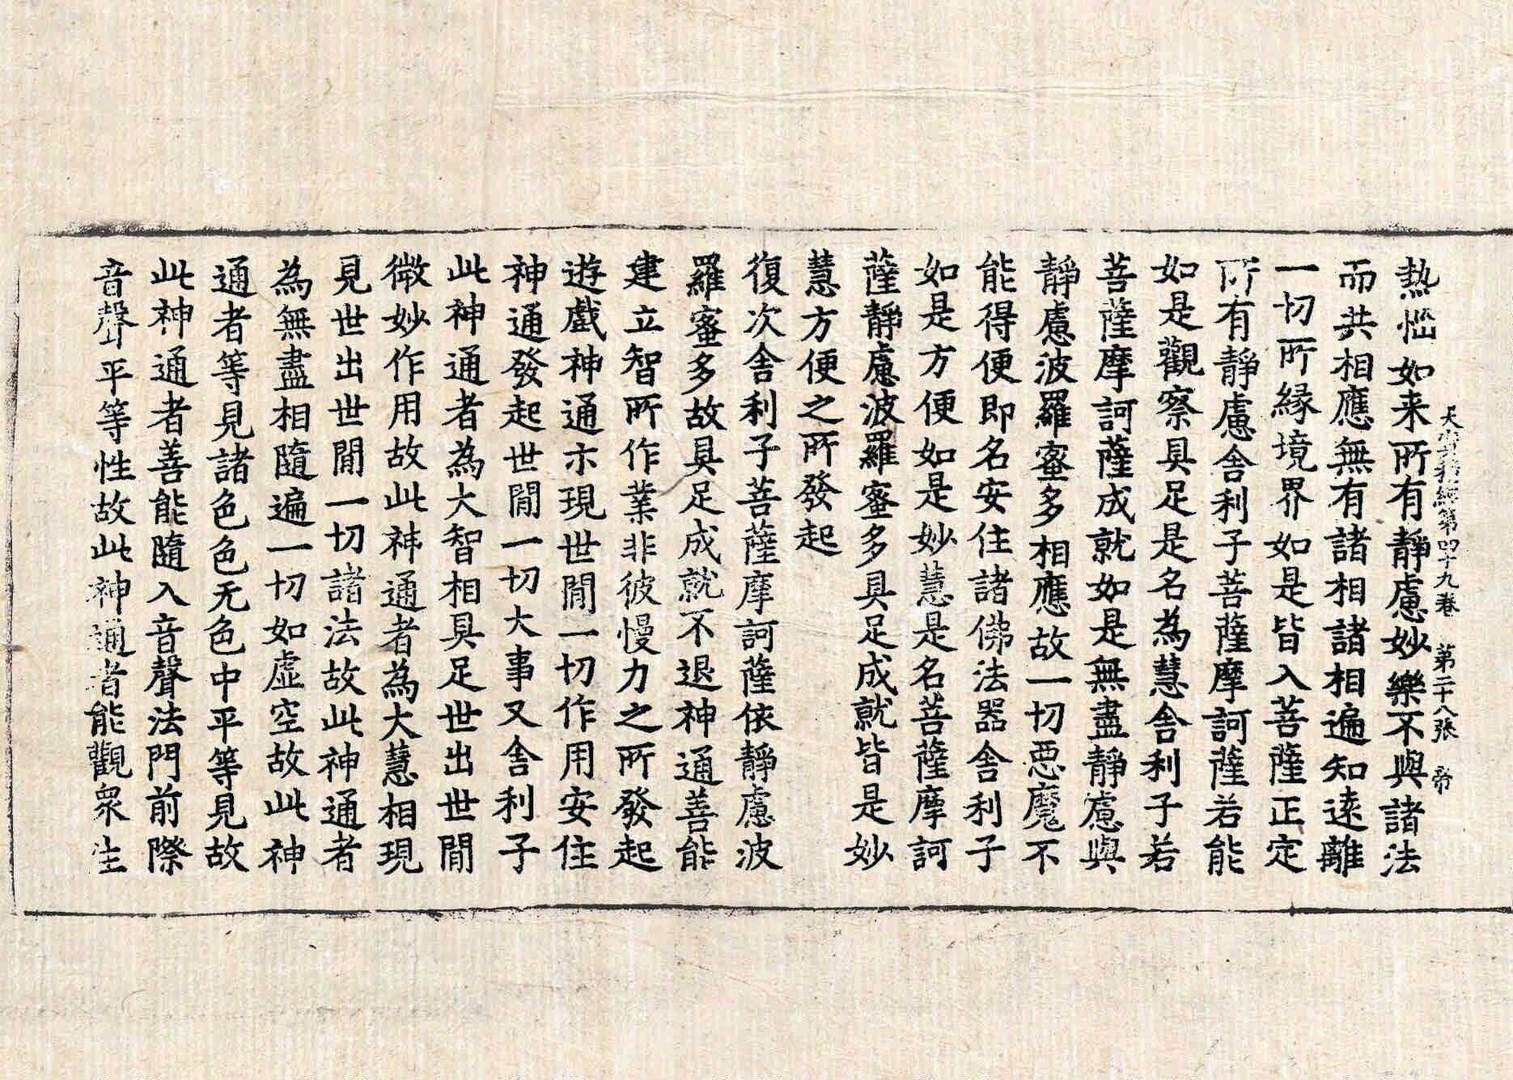 大寶積經第四十九卷　第二十八張　帝
熱惱如来所有靜慮妙樂不與諸法
而共相應無有諸相諸相遍知遠離
一切所縁境界如是皆入菩薩正定
所有靜慮舎利子菩薩摩訶薩若能
如是觀察具足是名為慧舎利子若
菩薩摩訶薩成就如是無盡靜慮與
靜慮波羅蜜多相應故一切惡魔不
能得便即名安住諸佛法器舎利子
如是方便如是妙慧是名菩薩摩訶
薩靜慮波羅蜜多具足成就皆是妙
慧方便之所發起
復次舎利子菩薩摩訶薩依靜慮波
羅蜜多故具足成就不退神通善能
建立智所作業非彼慢力之所發起
遊戲神通示現世間一切作用安住
神通發起世間一切大事又舎利子
此神通者為大智相具足世出世間
微妙作用故此神通者為大慧相現
見世出世間一切諸法故此神通者
為無盡相隨遍一切如虚空故此神
通者等見諸色色无色中平等見故
此神通者善能隨入音聲法門前際
音聲平等性故此神通者能觀衆生